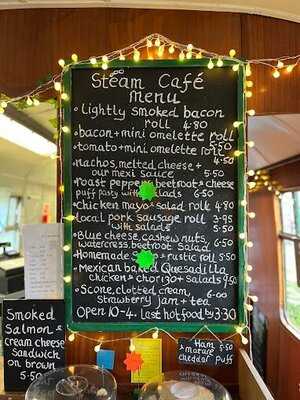 Steam Café
menu
• Lightly smoked bacon
roll 4·80
• bacon+mini omelette roll
5·50
• tomato+mini omelette roll
4·50
• nachos, melted cheese +
our mexi sauce 5·50
• roast pepper, beetroot & cheese
puff pastry with salads 6·50
• Chicken mayo & salad roll 4·80
• Local pork sausage roll 3·95
with salads 5·50
• Blue cheese, cashew nuts,
watercress, beetroot Salad 6·50
• Homemade & rustic roll 5·50
• Mexican baked Quesadilla
chicken & chorizo + salads 7·50
• Scone, clotted cream,
Strawberry jam + tea 6·00
Open 10-4. Last hot food by 3·30
Smoked
Salmon &
cream cheese
Sandwich
on brown
5·50
Ham &
mature
Cheddar puff